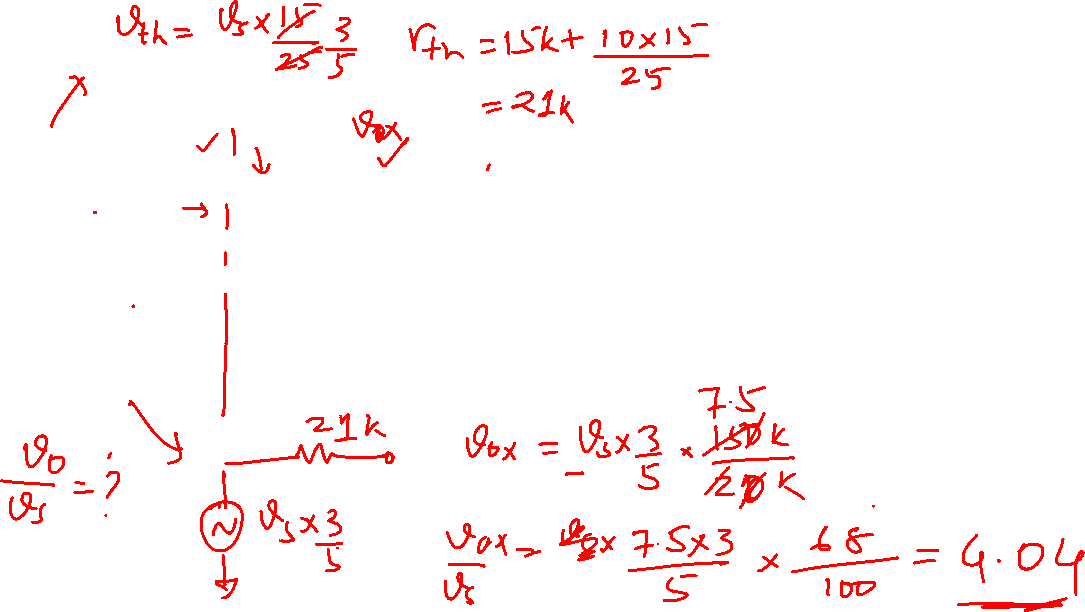 Vth = Vs × 15/25 3/5
rth = 15k + 10×15/25
= 21k
Vox
21k
Vo/Vs = ?
Vs × 3/5
7.5
Vox = -Vs × 3/5 × 150k/20k
Vox/Vs = × 7.5×3/5 × 68/100 = 4.04